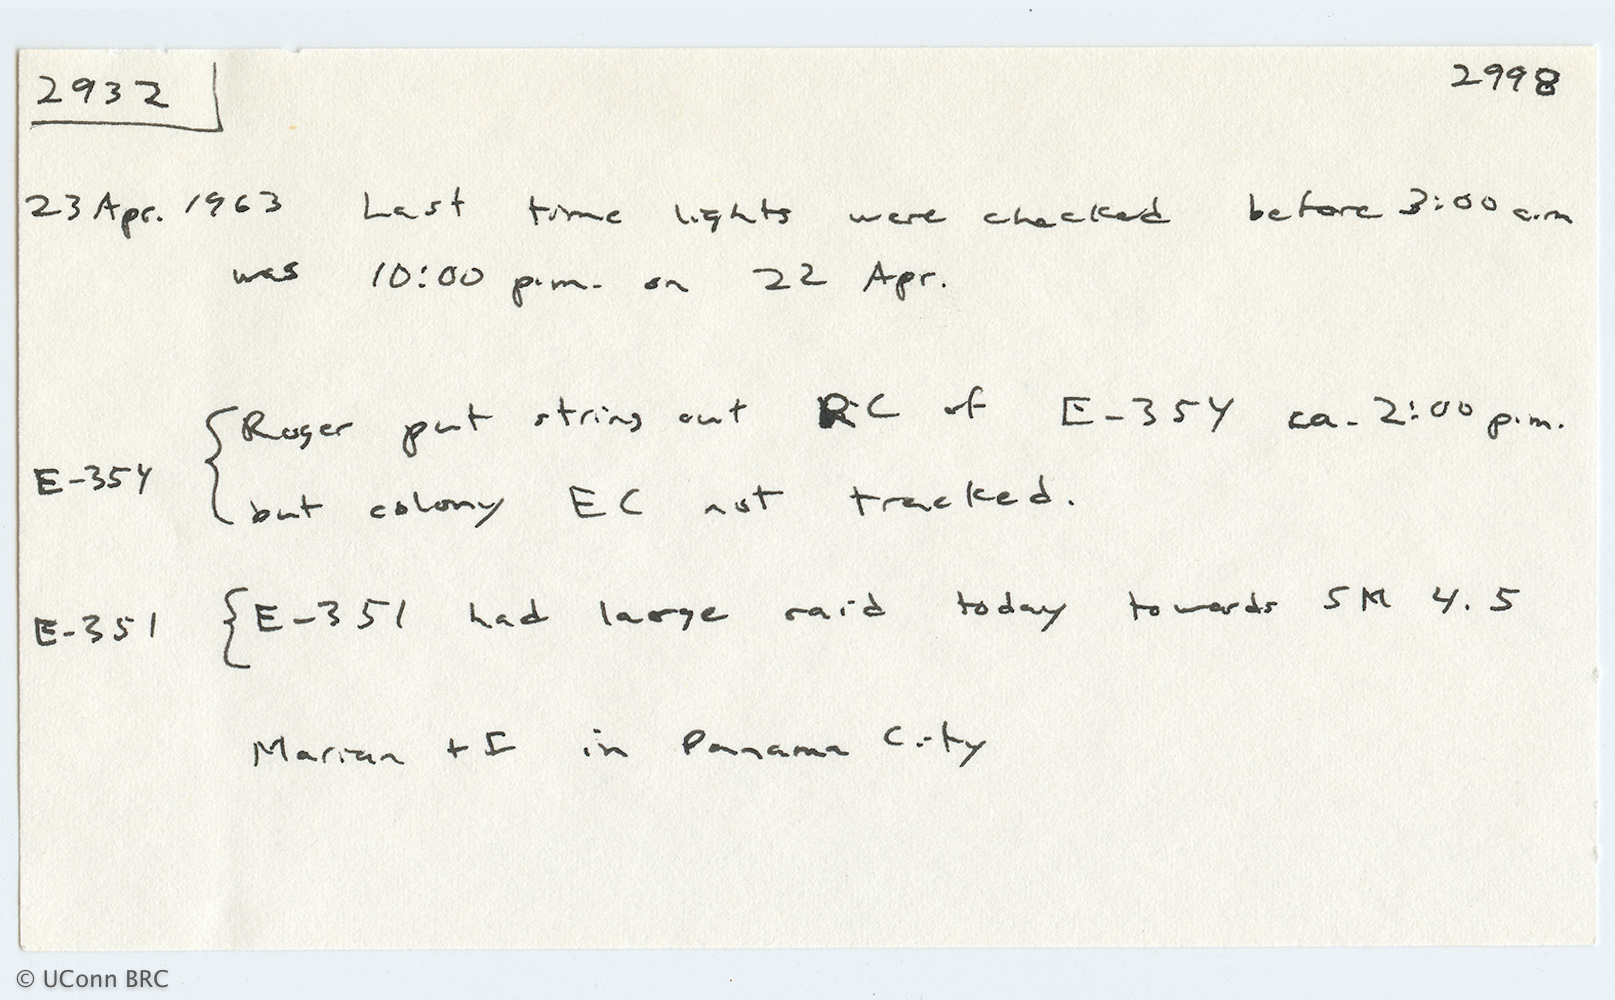 2932 2998
23 Apr. 1963 Last time lights were checked before 3:00 a.m
was 10:00 p.m. on 22 Apr.
Roger put string out RC of E-354 ca. 2:00 p.m.
E-354
but colony EC not tracked.
E-351 E-351 had large raid today towards SM 4.5
Marian + I in Panama City
© UConn BRC